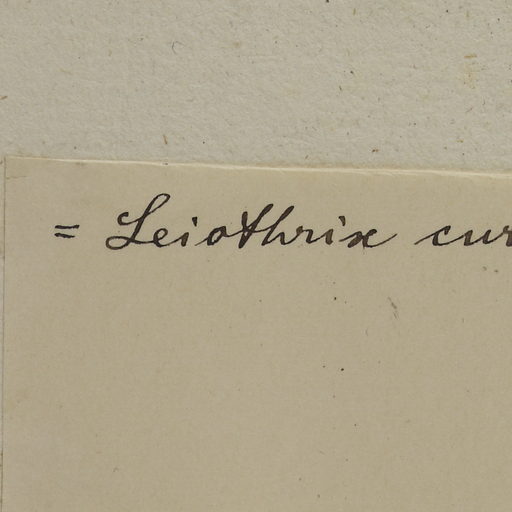 = Leiothrix cur